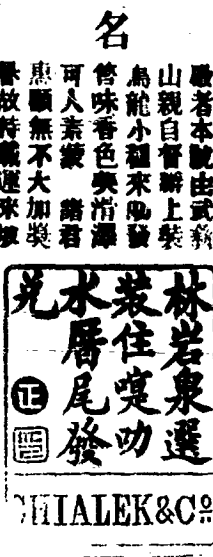 名
啟者本號由武彝
山親自督辦上裝
烏龍小種來叻發
售味香色奧清潭
可人素蒙 諸君
惠顧無不大加獎
譽故特載運來坡
林岩泉選
裝住嘜叻
水厝尾發
兌
正
CHIALEK&CO